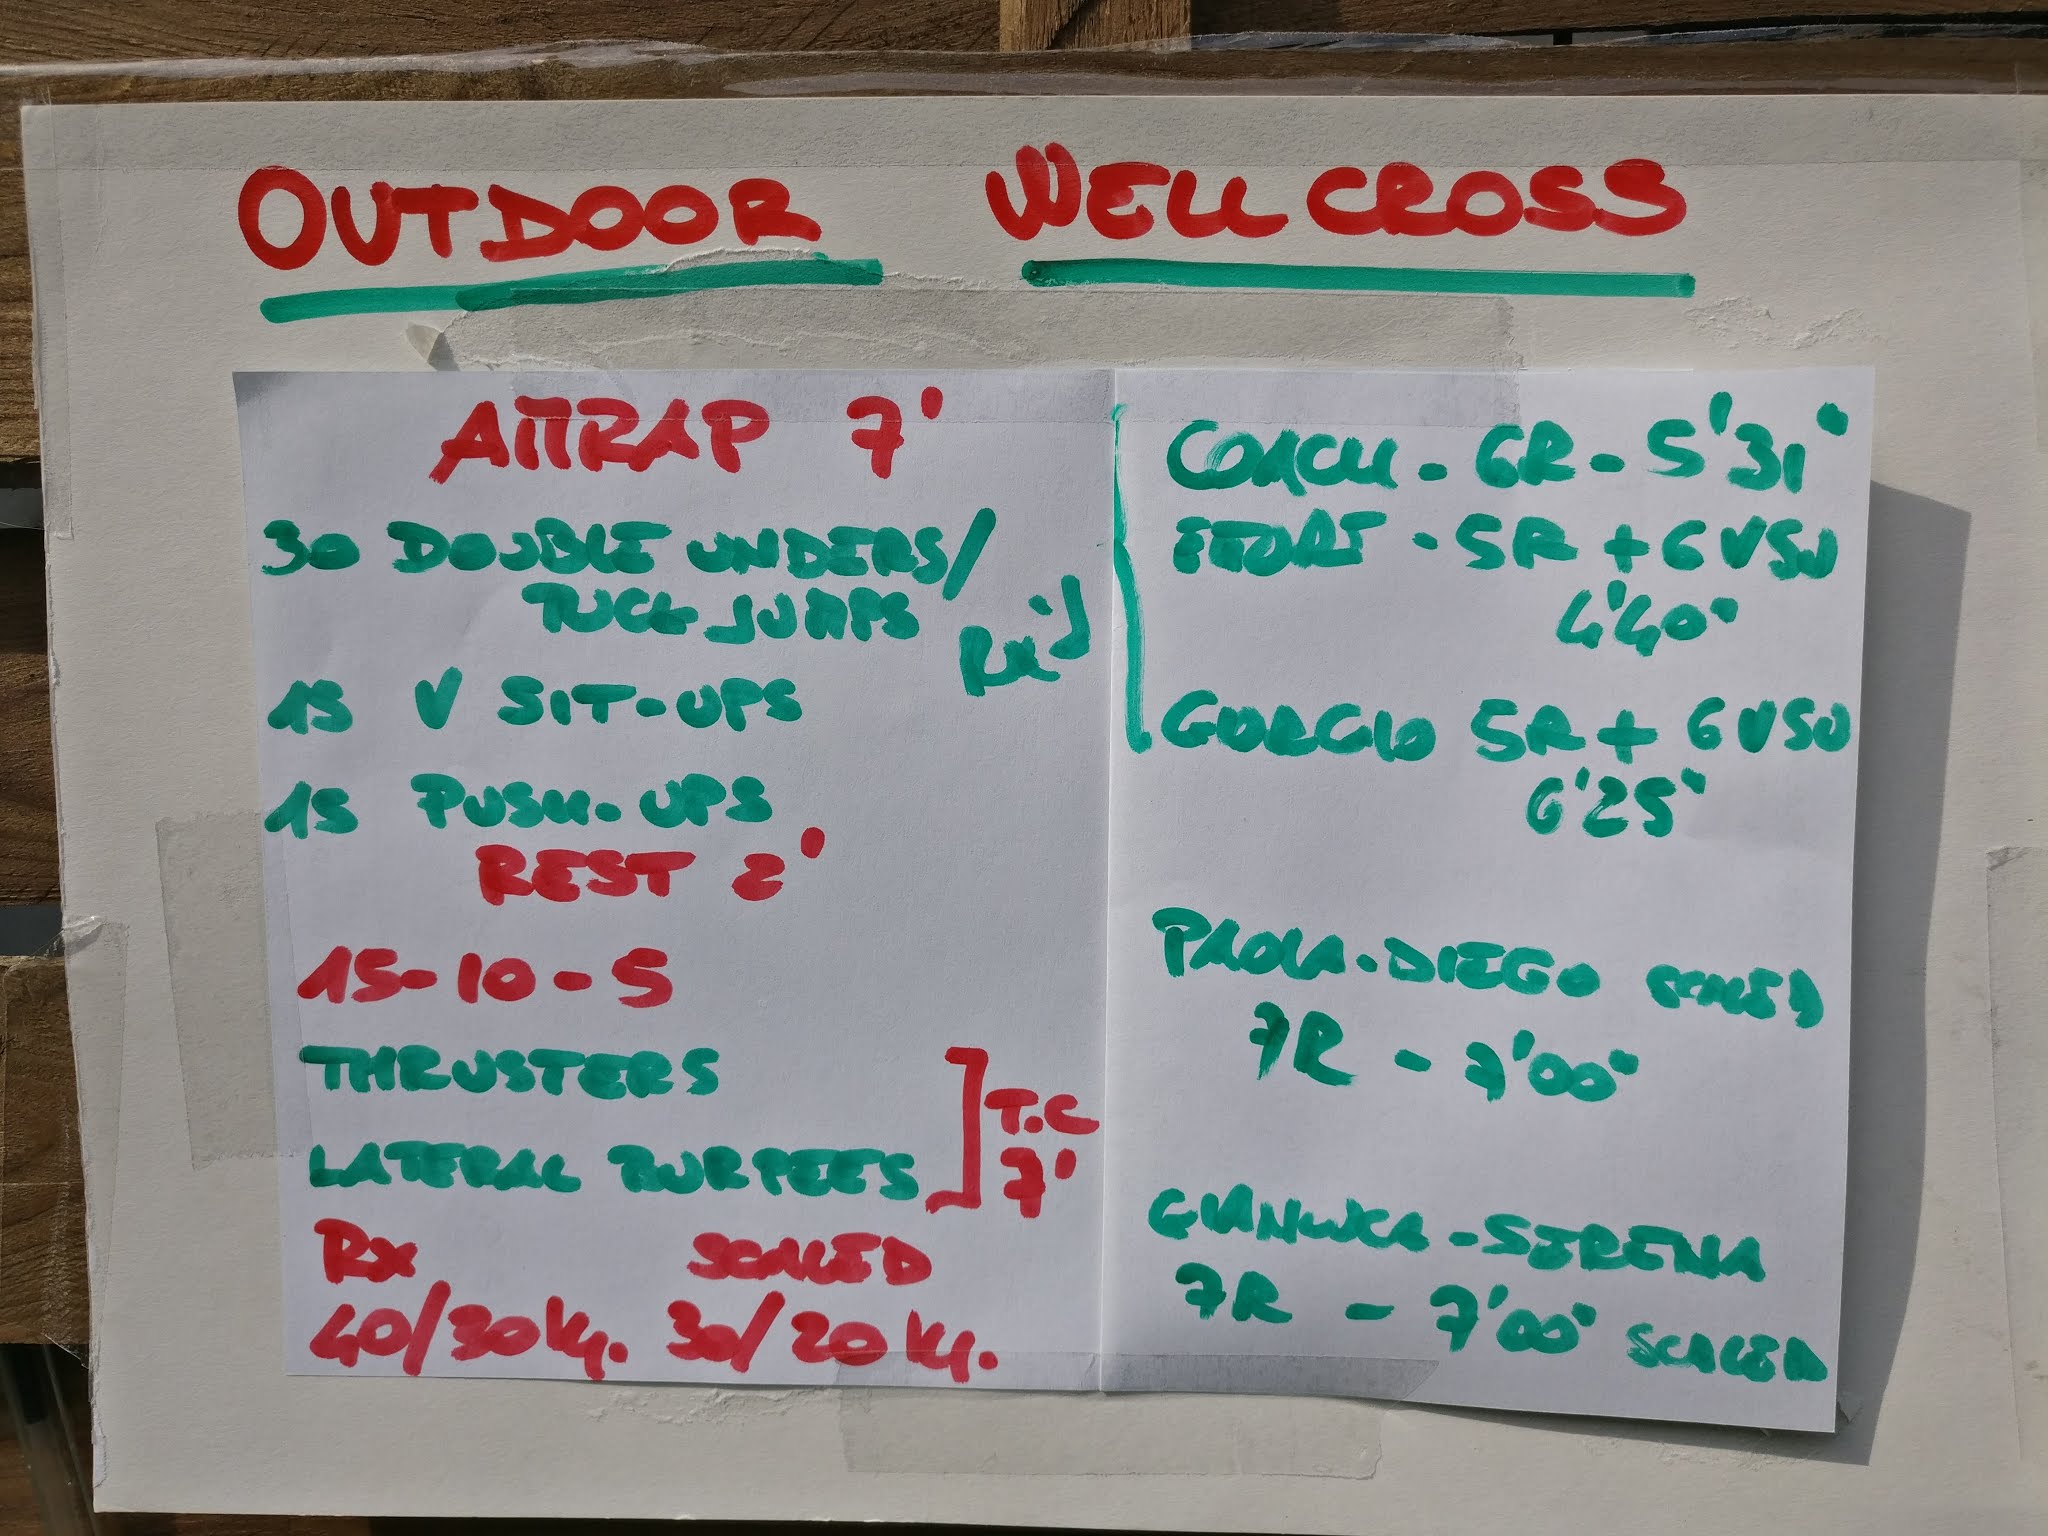 OUTDOOR WELLCROSS
AMRAP 7'
30 DOUBLE UNDERS/
TUCK JUMPS
RX'D
15 V SIT-UPS
15 PUSH-UPS
REST 2'
15-10-5
THRUSTERS
LATERAL BURPEES
T.C
7'
RX SCALED
40/30 Kg. 30/20 Kg.
COACH - 6R - 5'31"
- 5R + 6 VSU
4'40"
GIORGIO 5R + 6 VSU
6'25"
PAOLA - DIEGO SCALED
7R - 7'00"
GIANLUCA - SERENA
7R - 7'00" SCALED